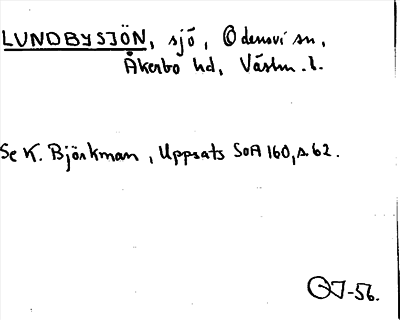 LUNDBYSJÖN, sjö, Odensvi sn,
Åkerbo hd, Västm. l.
Se K. Björkman, Uppsats SOA 160, s. 62.
-56.